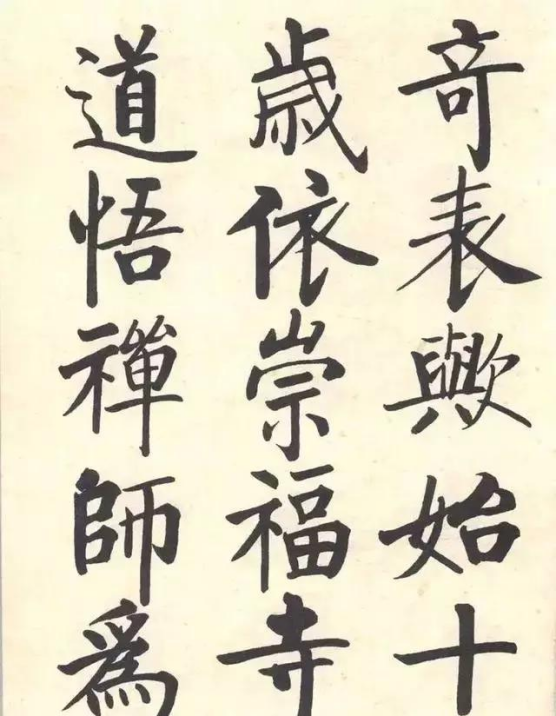 奇表歟始十
歳依崇福寺
道悟禪師爲